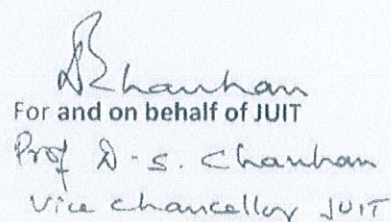 DSChauhan
For and on behalf of JUIT
Prof D.S. Chauhan
Vice Chancellor JUIT